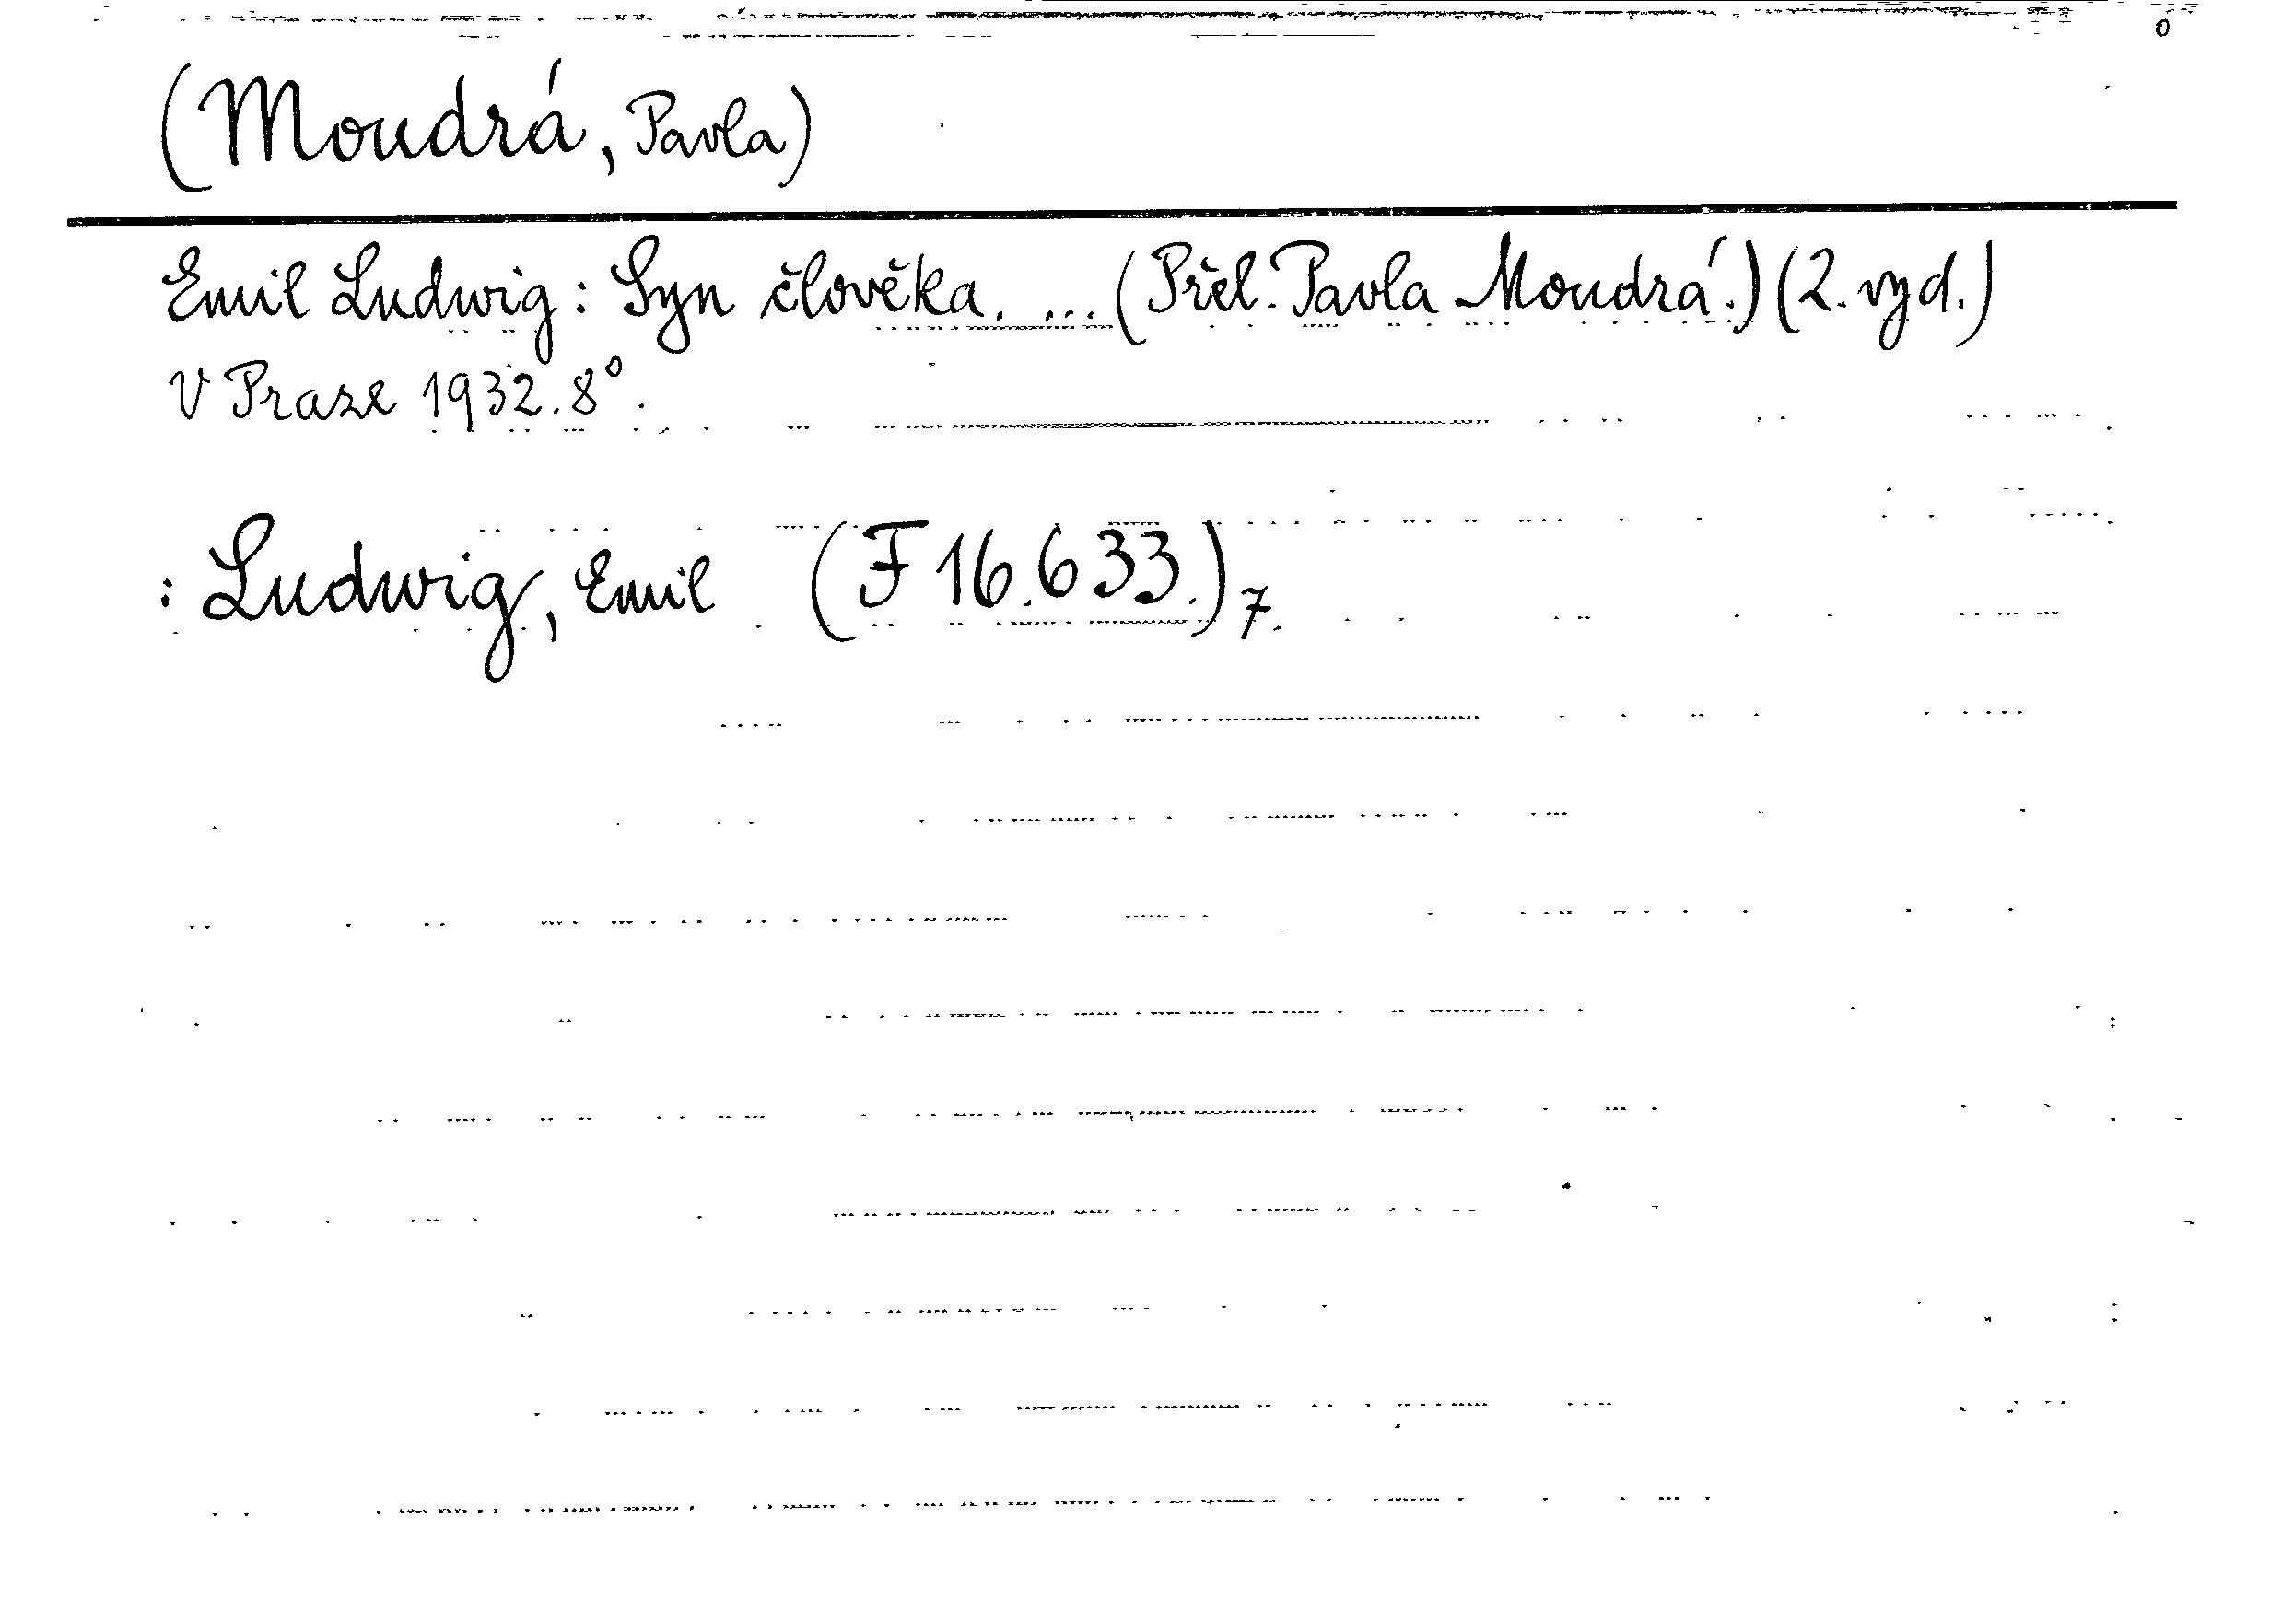 (Moudrá, Pavla)
Emil Ludwig: Syn člověka. ... (Přel. Pavla Moudrá.) (2. vyd.)
V Praze 1932. 8°.
: Ludwig, Emil (F 16.633.) 7.